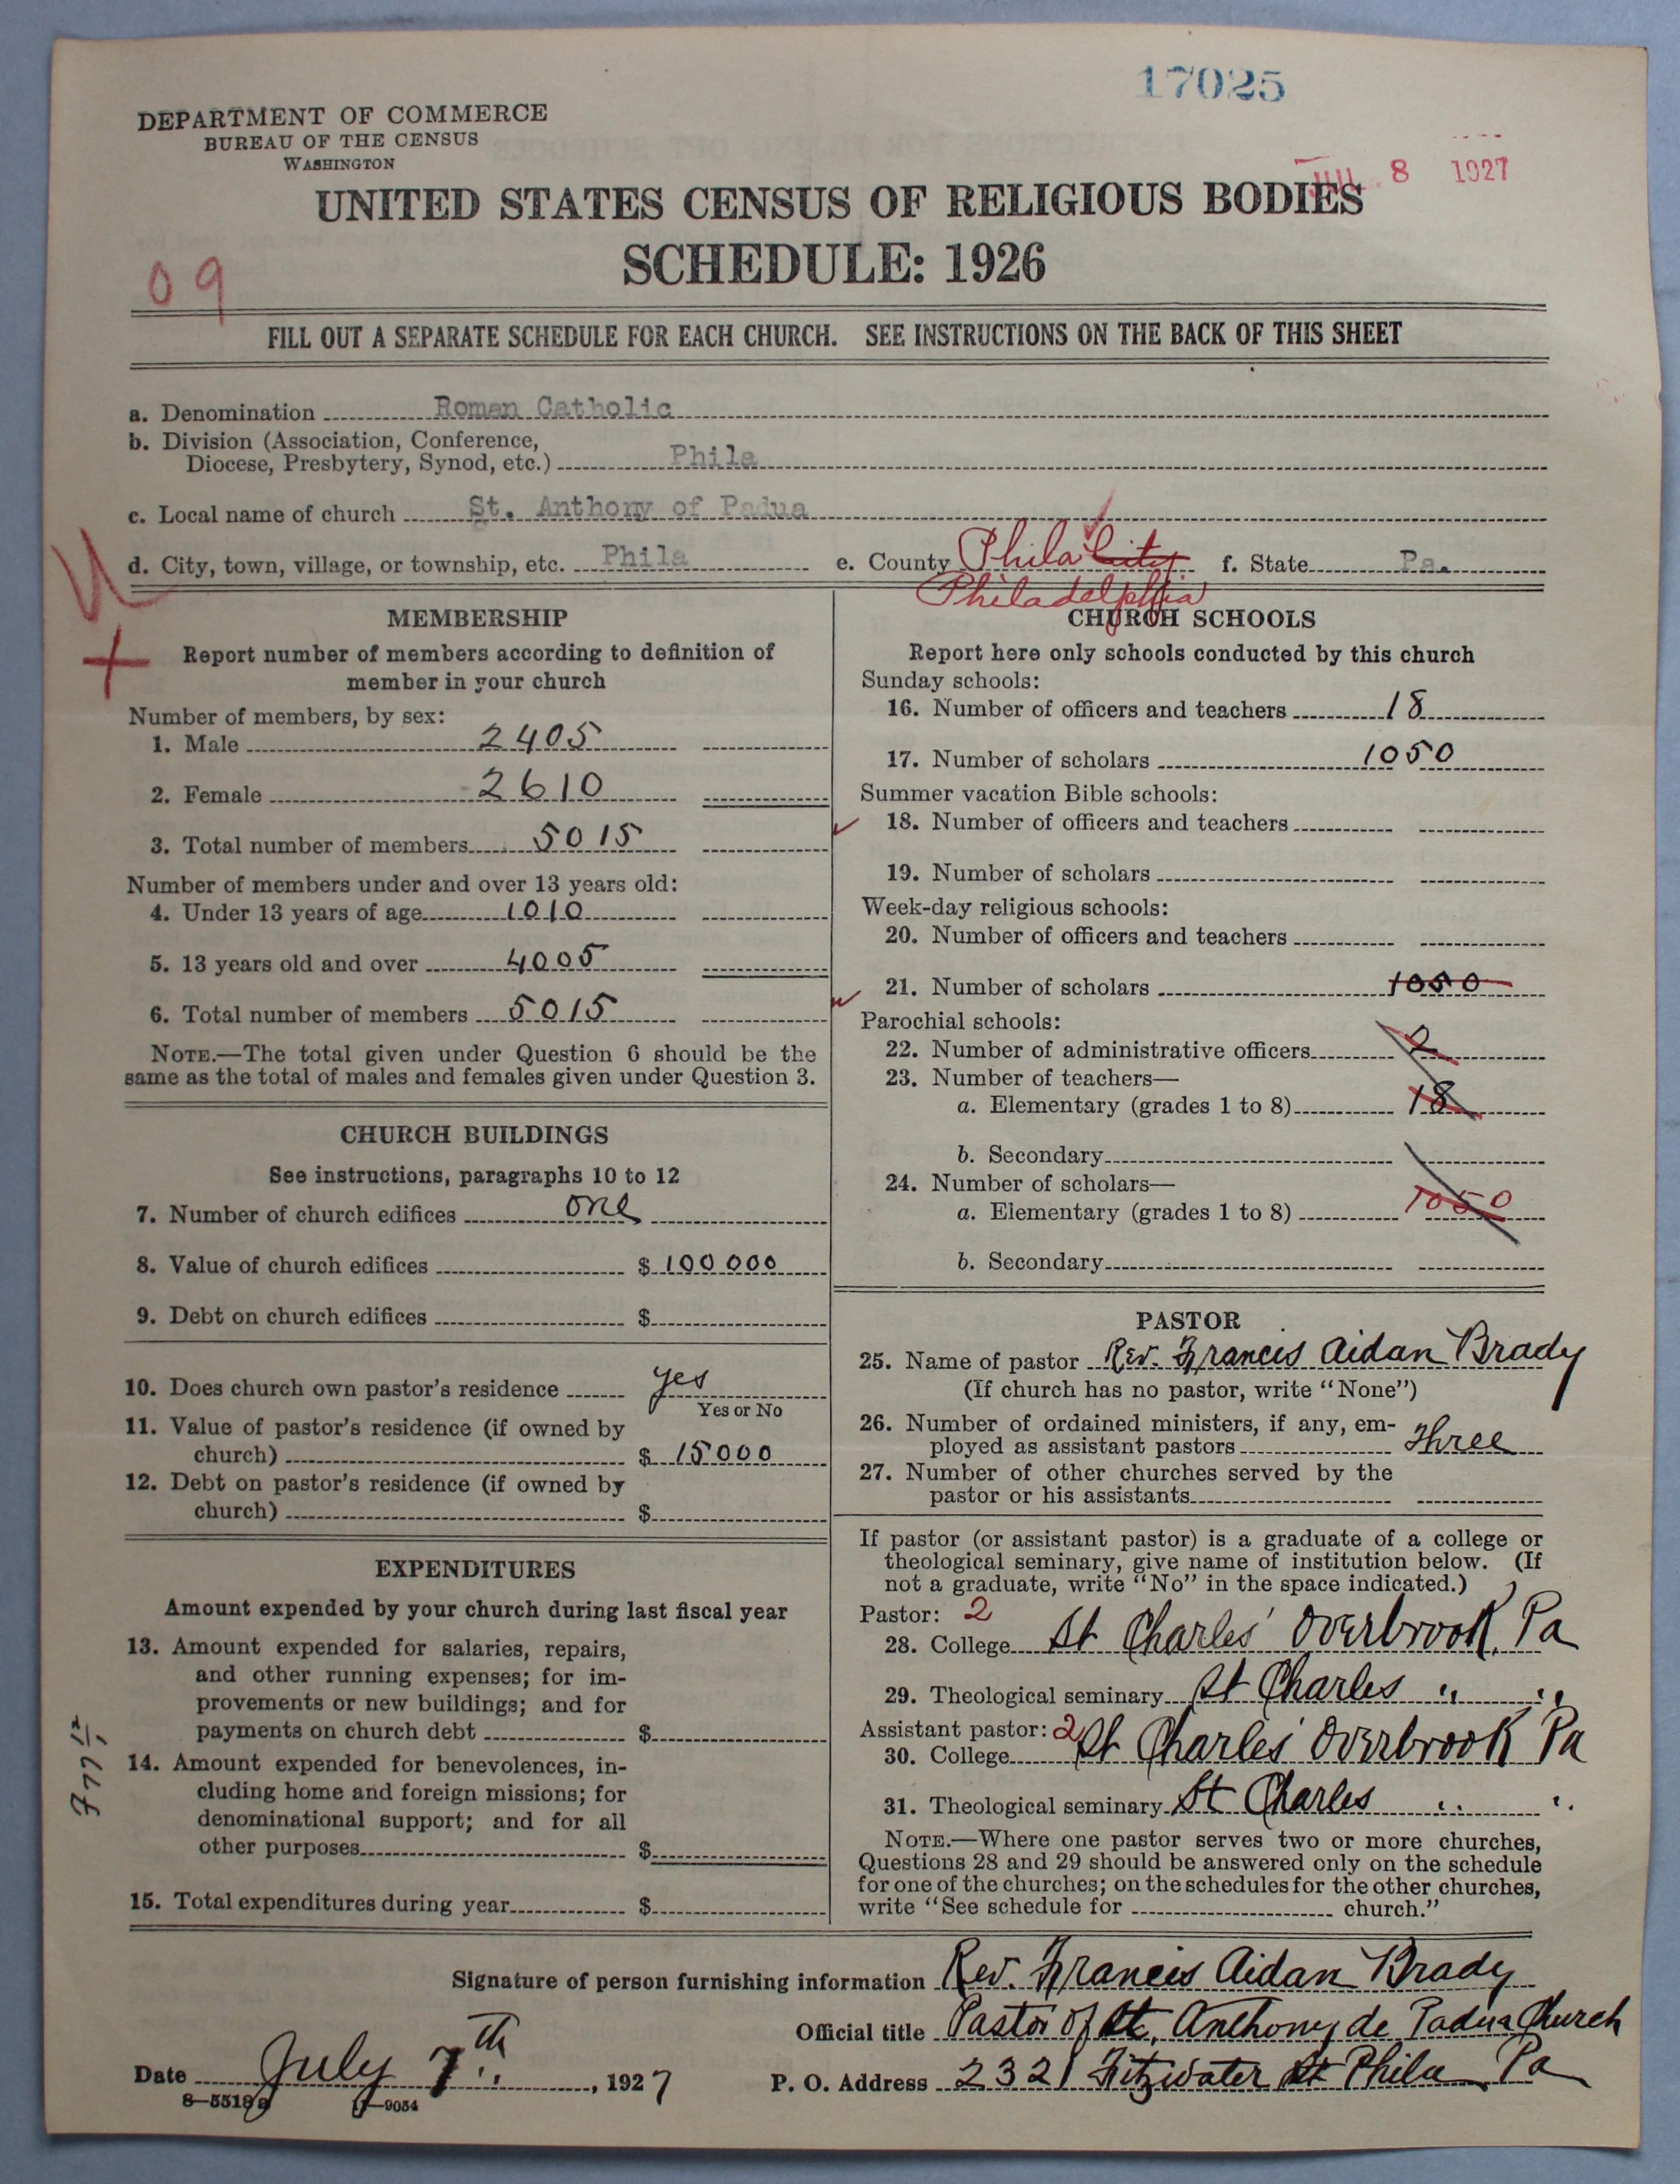 17025
DEPARTMENT OF COMMERCE
BUREAU OF THE CENSUS
WASHINGTON
JUL 8 1927
UNITED STATES CENSUS OF RELIGIOUS BODIES
SCHEDULE: 1926
09
FILL OUT A SEPARATE SCHEDULE FOR EACH CHURCH. SEE INSTRUCTIONS ON THE BACK OF THIS SHEET
a. Denomination Roman Catholic
b. Division (Association, Conference,
Diocese, Presbytery, Synod, etc.) Phila
c. Local name of church St. Anthony of Padua
d. City, town, village, or township, etc. Phila e. County Phila City f. State Pa.
Philadelphia
MEMBERSHIP
Report number of members according to definition of
member in your church
Number of members, by sex:
1. Male 2405
2. Female 2610
3. Total number of members 5015
Number of members under and over 13 years old:
4. Under 13 years of age 1010
5. 13 years old and over 4005
6. Total number of members 5015
NOTE.—The total given under Question 6 should be the
same as the total of males and females given under Question 3.
CHURCH BUILDINGS
See instructions, paragraphs 10 to 12
7. Number of church edifices one
8. Value of church edifices $ 100 000
9. Debt on church edifices $
10. Does church own pastor's residence yes
Yes or No
11. Value of pastor's residence (if owned by
church) $ 15000
12. Debt on pastor's residence (if owned by
church) $
EXPENDITURES
Amount expended by your church during last fiscal year
13. Amount expended for salaries, repairs,
and other running expenses; for im-
provements or new buildings; and for
payments on church debt $
14. Amount expended for benevolences, in-
cluding home and foreign missions; for
denominational support; and for all
other purposes $
15. Total expenditures during year $
CHURCH SCHOOLS
Report here only schools conducted by this church
Sunday schools:
16. Number of officers and teachers 18
17. Number of scholars 1050
Summer vacation Bible schools:
18. Number of officers and teachers
19. Number of scholars
Week-day religious schools:
20. Number of officers and teachers
21. Number of scholars 1050
Parochial schools:
22. Number of administrative officers 2
23. Number of teachers—
a. Elementary (grades 1 to 8) 18
b. Secondary
24. Number of scholars—
a. Elementary (grades 1 to 8) 1050
b. Secondary
PASTOR
25. Name of pastor Rev. Francis Aidan Brady
(If church has no pastor, write "None")
26. Number of ordained ministers, if any, em-
ployed as assistant pastors Three
27. Number of other churches served by the
pastor or his assistants
If pastor (or assistant pastor) is a graduate of a college or
theological seminary, give name of institution below. (If
not a graduate, write "No" in the space indicated.)
Pastor: 2
28. College St Charles' Overbrook, Pa
29. Theological seminary St Charles " "
Assistant pastor: 2
30. College St Charles' Overbrook Pa
31. Theological seminary St Charles " "
NOTE.—Where one pastor serves two or more churches,
Questions 28 and 29 should be answered only on the schedule
for one of the churches; on the schedules for the other churches,
write "See schedule for church."
Signature of person furnishing information Rev. Francis Aidan Brady
Official title Pastor of St. Anthony de Padua Church
Date July 7th, 1927 P. O. Address 2321 Fitzwater St Phila Pa
8—5518a 11—9054